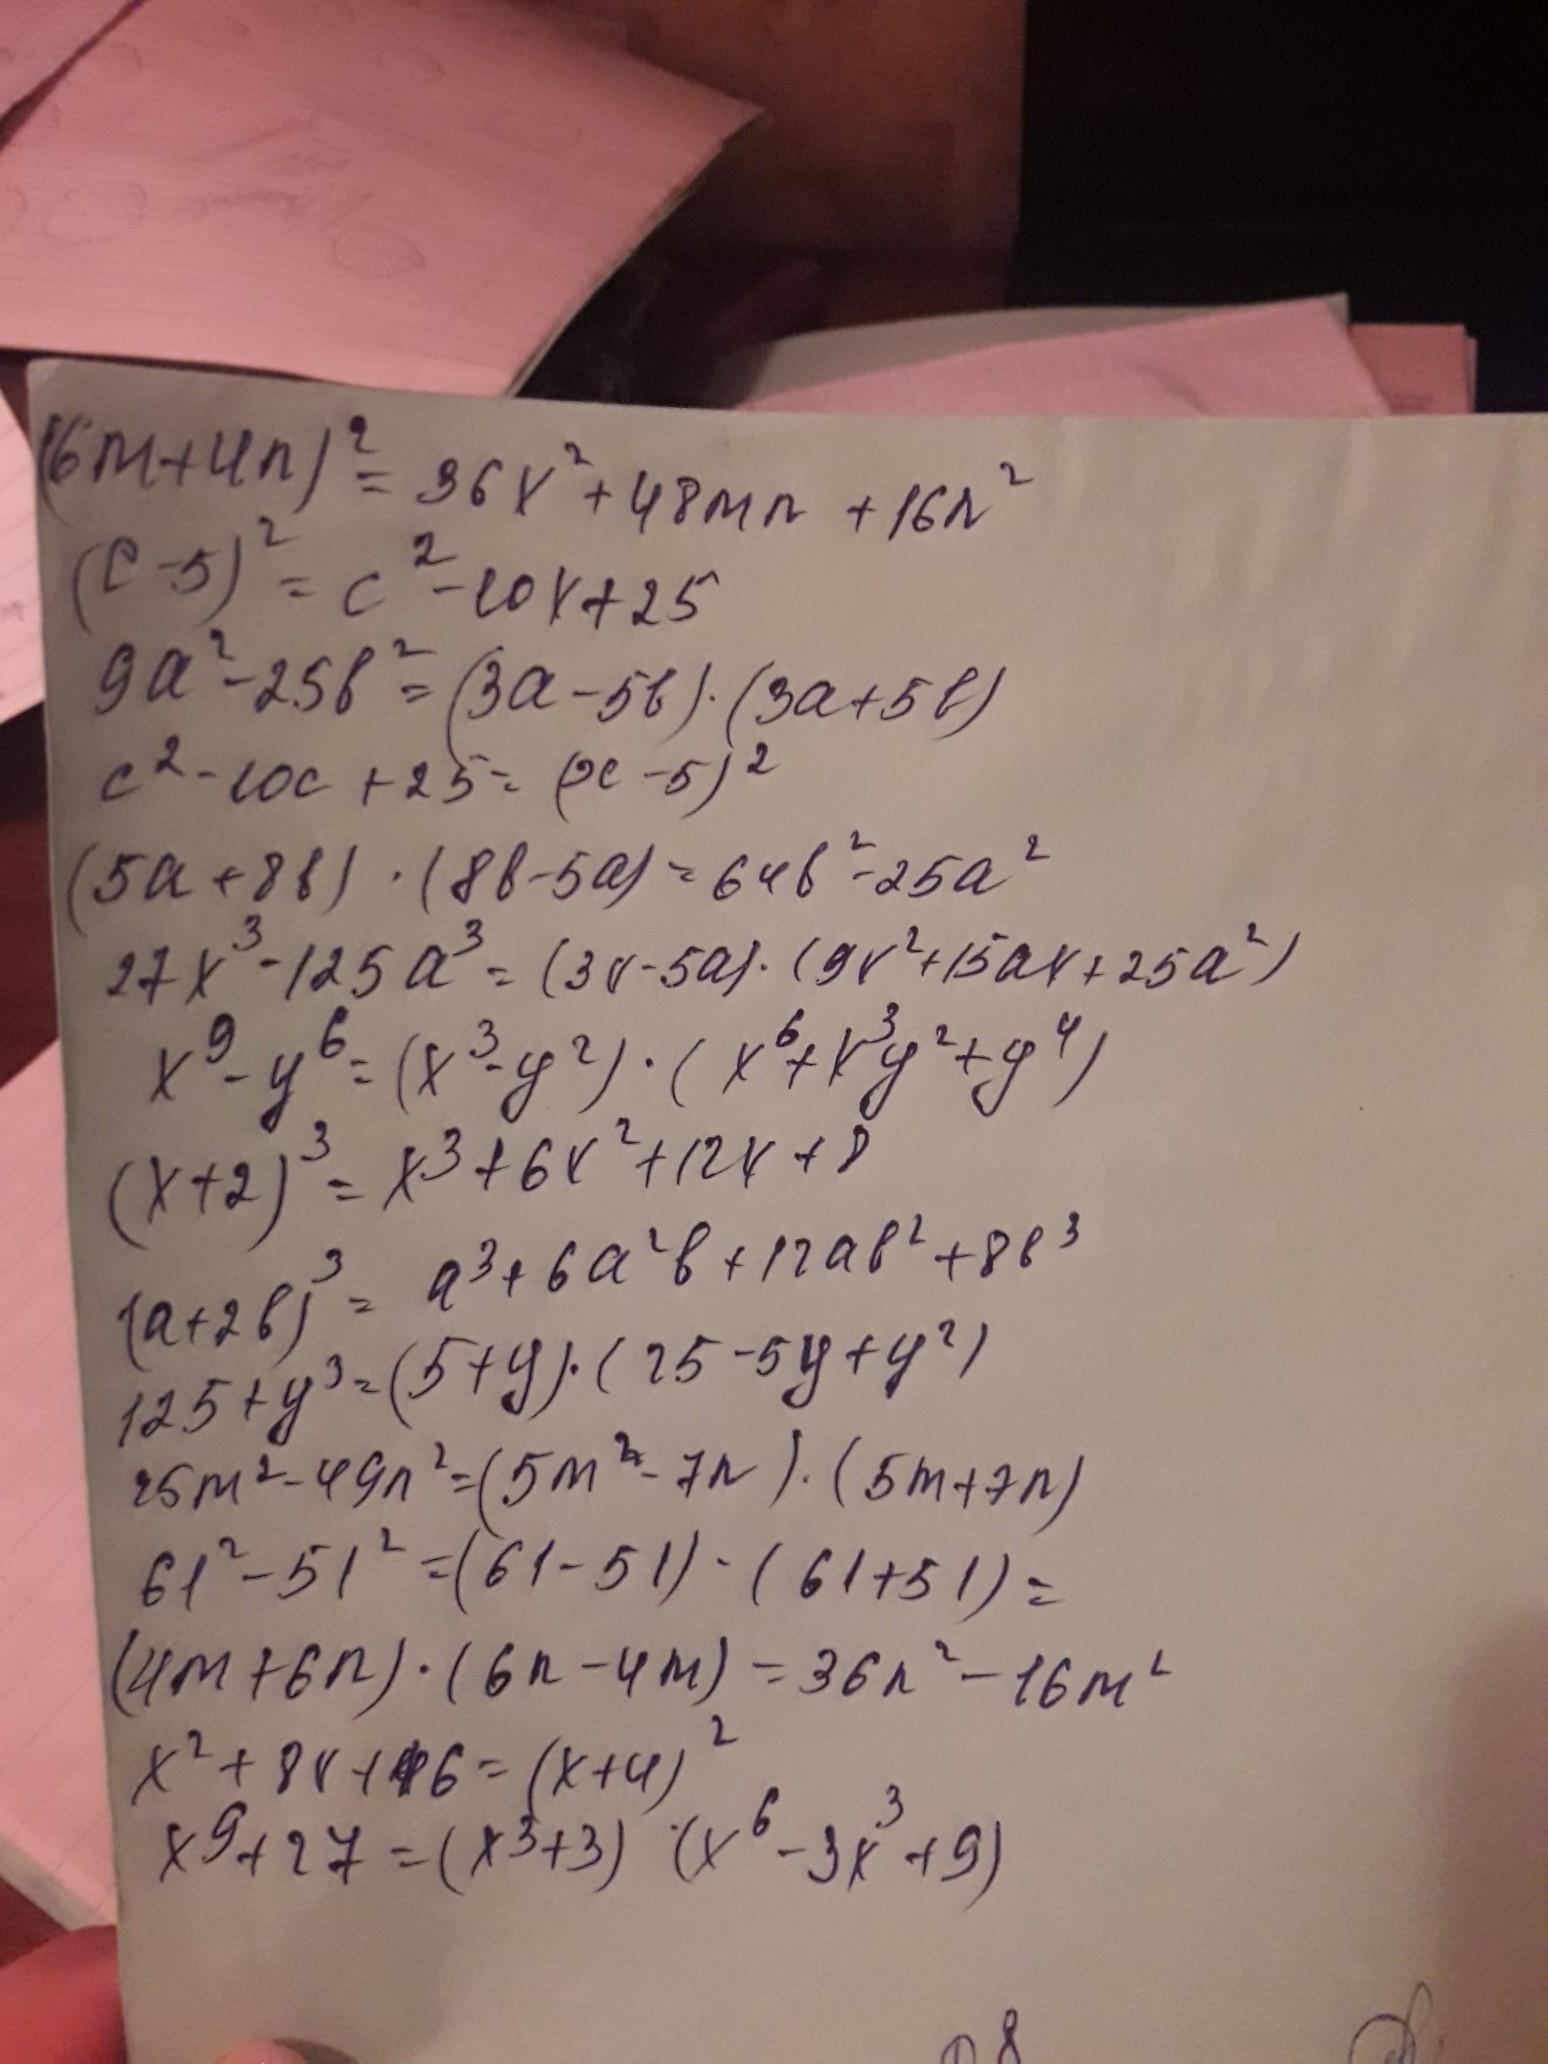 (6m+4n)² = 36x² + 48mn + 16n²
(c-5)² = c² - 10x + 25
9a² - 25b² = (3a - 5b) · (3a + 5b)
c² - 10c + 25 = (x - 5)²
(5a + 8b) · (8b - 5a) = 64b² - 25a²
27x³ - 125a³ = (3x - 5a) · (9x² + 15ax + 25a²)
x⁹ - y⁶ = (x³ - y²) · (x⁶ + x³y² + y⁴)
(x+2)³ = x³ + 6x² + 12x + 8
(a+2b)³ = a³ + 6a²b + 12ab² + 8b³
125 + y³ = (5+y) · (25 - 5y + y²)
25m² - 49n² = (5m² - 7n) · (5m + 7n)
61² - 51² = (61 - 51) · (61 + 51) =
(4m + 6n) · (6n - 4m) = 36n² - 16m²
x² + 8x + 16 = (x+4)²
x⁹ + 27 = (x³ + 3) · (x⁶ - 3x³ + 9)
8